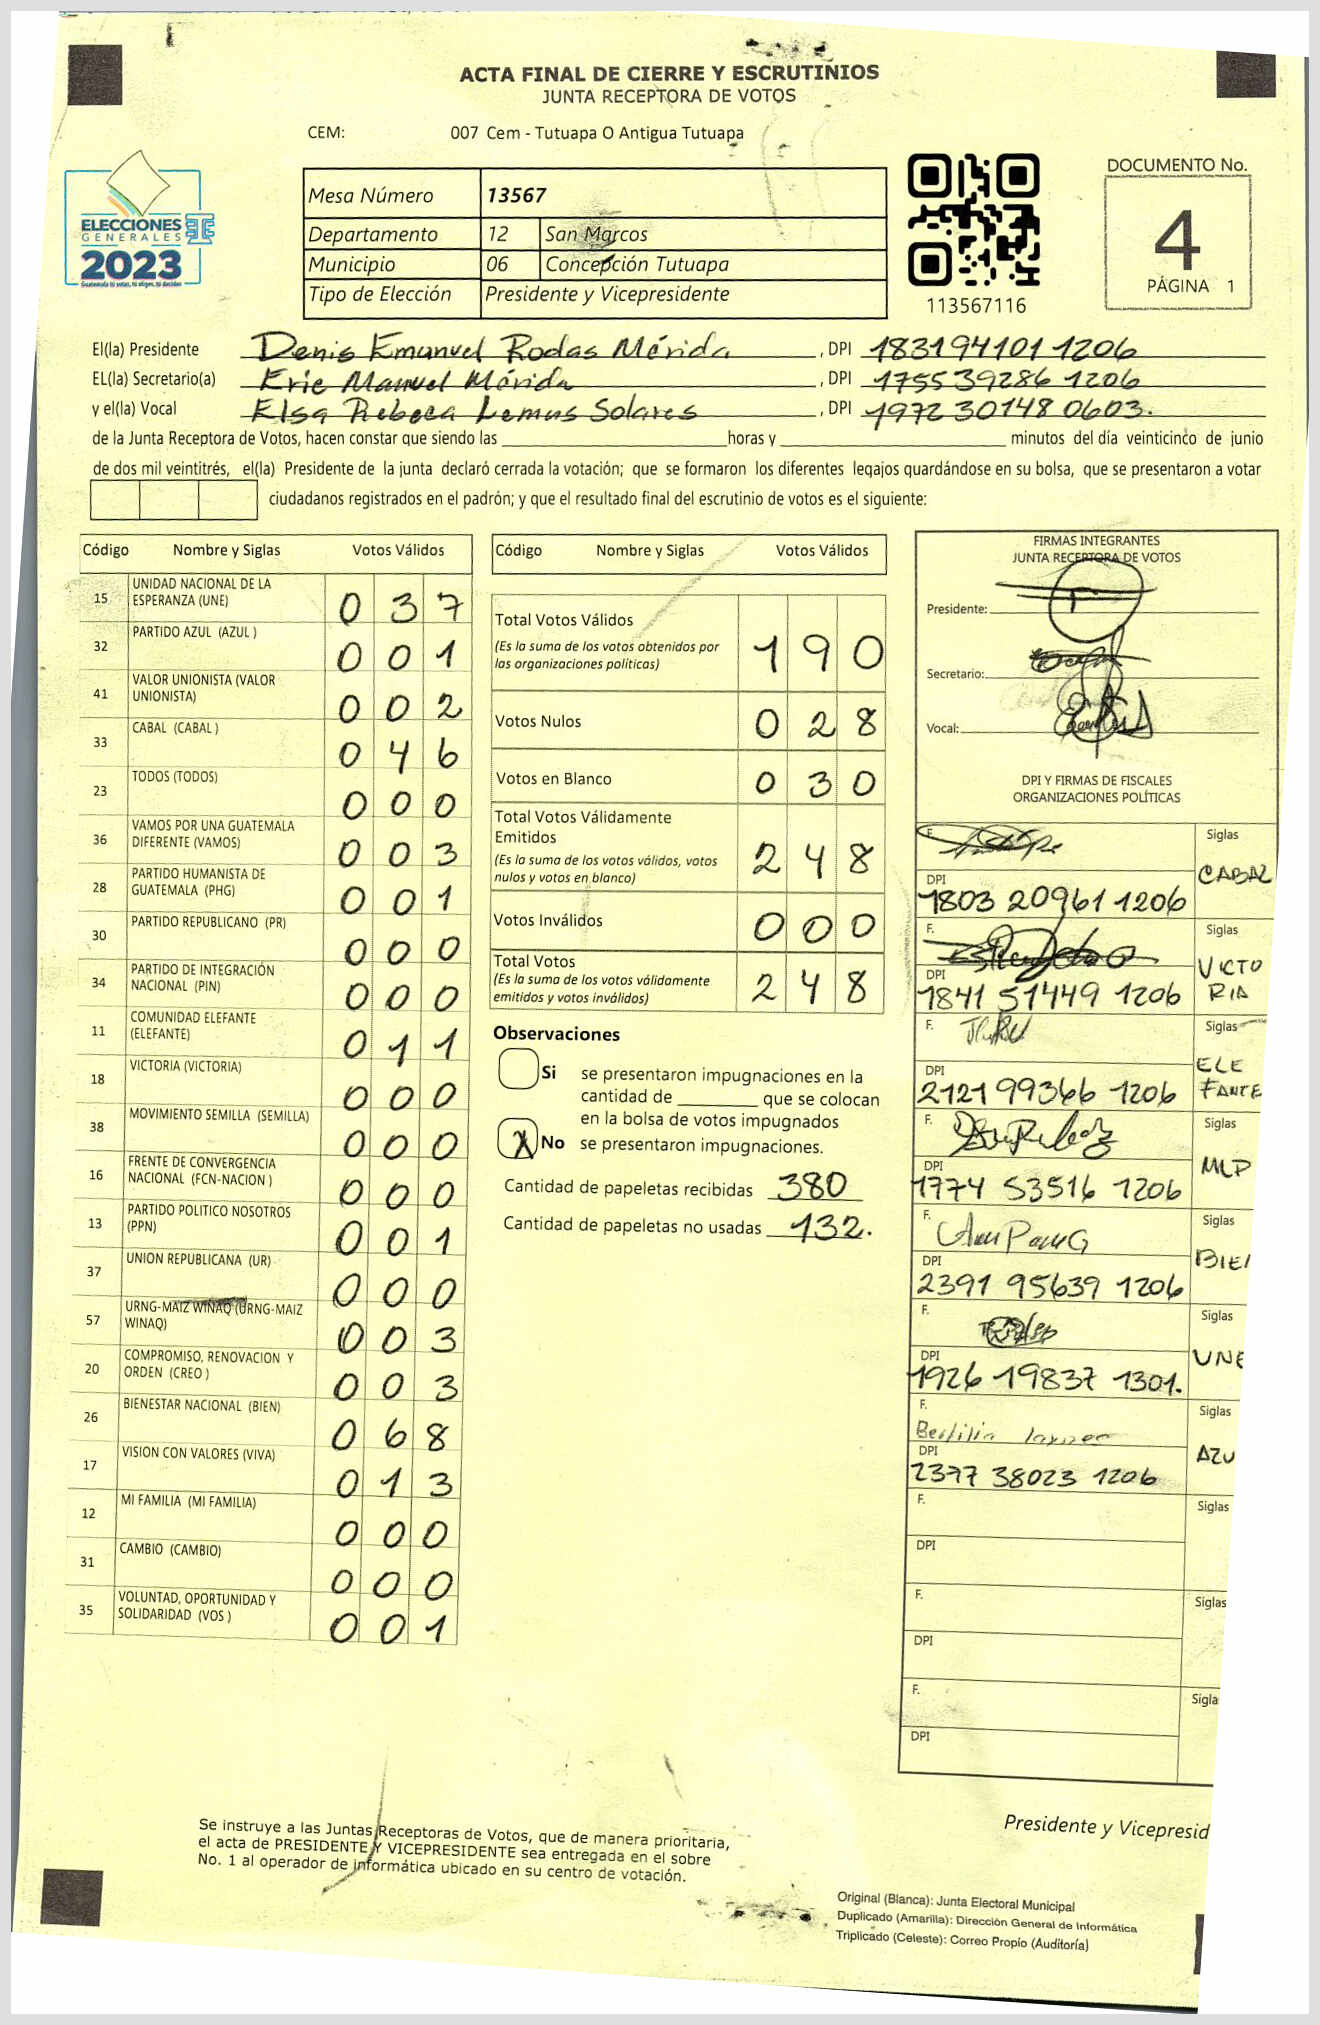 ACTA FINAL DE CIERRE Y ESCRUTINIOS
JUNTA RECEPTORA DE VOTOS
CEM: 007 Cem - Tutuapa O Antigua Tutuapa
ELECCIONES
GENERALES
2023
Guatemala tú votas, tú eliges, tú decides
Mesa Número 13567
Departamento 12 San Marcos
Municipio 06 Concepción Tutuapa
Tipo de Elección Presidente y Vicepresidente
113567116
DOCUMENTO No.
4
PÁGINA 1
El(la) Presidente Denis Emanuel Rodas Mérida, DPI 183194101 1206
EL(la) Secretario(a) Eric Manuel Mérida, DPI 175539286 1206
y el(la) Vocal Elsa Rebeca Lemus Solares, DPI 1972 30148 0603.
de la Junta Receptora de Votos, hacen constar que siendo las horas y minutos del día veinticinco de junio
de dos mil veintitrés, el(la) Presidente de la junta declaró cerrada la votación; que se formaron los diferentes legajos guardándose en su bolsa, que se presentaron a votar
ciudadanos registrados en el padrón; y que el resultado final del escrutinio de votos es el siguiente:
Código Nombre y Siglas Votos Válidos
15 UNIDAD NACIONAL DE LA
ESPERANZA (UNE) 0 3 7
32 PARTIDO AZUL (AZUL ) 0 0 1
41 VALOR UNIONISTA (VALOR
UNIONISTA) 0 0 2
33 CABAL (CABAL ) 0 4 6
23 TODOS (TODOS) 0 0 0
36 VAMOS POR UNA GUATEMALA
DIFERENTE (VAMOS) 0 0 3
28 PARTIDO HUMANISTA DE
GUATEMALA (PHG) 0 0 1
30 PARTIDO REPUBLICANO (PR) 0 0 0
34 PARTIDO DE INTEGRACIÓN
NACIONAL (PIN) 0 0 0
11 COMUNIDAD ELEFANTE
(ELEFANTE) 0 1 1
18 VICTORIA (VICTORIA) 0 0 0
38 MOVIMIENTO SEMILLA (SEMILLA) 0 0 0
16 FRENTE DE CONVERGENCIA
NACIONAL (FCN-NACION ) 0 0 0
13 PARTIDO POLITICO NOSOTROS
(PPN) 0 0 1
37 UNION REPUBLICANA (UR) 0 0 0
57 URNG-MAIZ WINAQ (URNG-MAIZ
WINAQ) 0 0 3
20 COMPROMISO, RENOVACION Y
ORDEN (CREO ) 0 0 3
26 BIENESTAR NACIONAL (BIEN) 0 6 8
17 VISION CON VALORES (VIVA) 0 1 3
12 MI FAMILIA (MI FAMILIA) 0 0 0
31 CAMBIO (CAMBIO) 0 0 0
35 VOLUNTAD, OPORTUNIDAD Y
SOLIDARIDAD (VOS ) 0 0 1
Código Nombre y Siglas Votos Válidos
Total Votos Válidos
(Es la suma de los votos obtenidos por
las organizaciones políticas) 1 9 0
Votos Nulos 0 2 8
Votos en Blanco 0 3 0
Total Votos Válidamente
Emitidos
(Es la suma de los votos válidos, votos
nulos y votos en blanco) 2 4 8
Votos Inválidos 0 0 0
Total Votos
(Es la suma de los votos válidamente
emitidos y votos inválidos) 2 4 8
Observaciones
Si se presentaron impugnaciones en la
cantidad de que se colocan
en la bolsa de votos impugnados
X No se presentaron impugnaciones.
Cantidad de papeletas recibidas 380
Cantidad de papeletas no usadas 132.
FIRMAS INTEGRANTES
JUNTA RECEPTORA DE VOTOS
Presidente:
Secretario:
Vocal:
DPI Y FIRMAS DE FISCALES
ORGANIZACIONES POLÍTICAS
F. Siglas
CABAL
DPI
1803 20961 1206
F. Siglas
VICTO
RIA
DPI
1841 51449 1206
F. Siglas
ELE
FANTE
DPI
2121 99366 1206
F. Siglas
MLP
DPI
1774 53516 1206
F. Siglas
BIEN
DPI
2391 95639 1206
F. Siglas
UNE
DPI
1926 19837 1301.
F. Siglas
AZU
DPI
2377 38023 1206
F. Siglas
DPI
F. Siglas
DPI
F. Sigla
DPI
Presidente y Vicepresid
Se instruye a las Juntas Receptoras de Votos, que de manera prioritaria,
el acta de PRESIDENTE Y VICEPRESIDENTE sea entregada en el sobre
No. 1 al operador de informática ubicado en su centro de votación.
Original (Blanca): Junta Electoral Municipal
Duplicado (Amarilla): Dirección General de Informática
Triplicado (Celeste): Correo Propio (Auditoría)